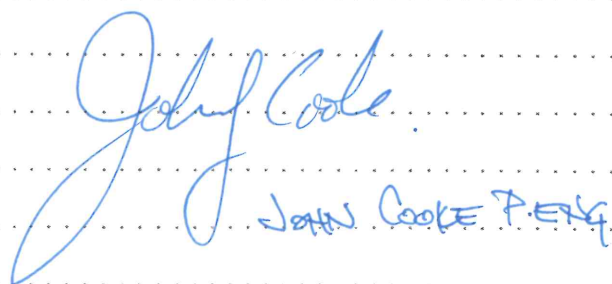 John Cooke.
JOHN COOKE P.ENG